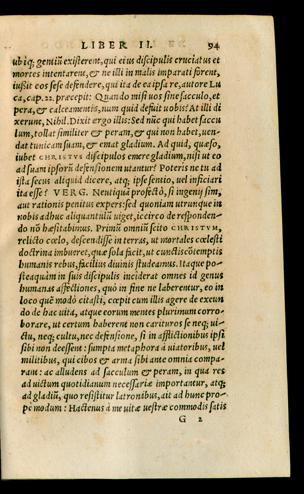 LIBER II. 94
ubiq; gentiū existerent, qui eius discipulis cruciatus et
mortes intentarent, & ne illi in malis imparati forent,
iußit eos sese defendere, qui ita de ea ipsa re, autore Lu
ca, cap. 22. præcepit: Quando misi uos sine sacculo, et
pera, & calceamentis, num quid defuit uobis? At illi di
xerunt, Nihil. Dixit ergo illis: Sed nūc qui habet saccu
lum, tollat similiter & peram, & qui non habet, uen-
dat tunicam suam, & emat gladium. Ad quid, quæso,
iubet CHRISTVS discipulos emere gladium, nisi ut eo
ad suam ipsorū defensionem utantur? Poteris ne tu ad
ista secus aliquid dicere, atq; ipse sentio, uel inficiari
ita esse? VERG. Neutiquā profectò, si ingenij sim,
aut rationis penitus expers: sed quoniam utrunque in
nobis adhuc aliquantulū uiget, iccirco de responden-
do nō hæsitabimus. Primū omniū scito CHRISTVM,
relicto cœlo, descendisse in terras, ut mortales cœlesti
doctrina imbueret, quæ sola facit, ut cunctis cōtemptis
humanis rebus, facilius diuinis studeamus. Itaque po-
steaquàm in suis discipulis inciderat omnes id genus
humanas affectiones, quò in fine ne laberentur, eo in
loco quē modò citasti, cœpit cum illis agere de excun
do de hac uita, atque eorum mentes plurimum corro-
borare, ut certum haberent non carituros se neq; ui-
ctu, neq; cultu, nec defensione, si in afflictionibus ipsi
sibi non deessent: sumpta metaphora à uiatoribus, uel
militibus, qui cibos & arma sibi ante omnia compa-
ram: ac alludens ad sacculum & peram, in qua res
ad uictum quotidianum necessariæ importantur, atq;
ad gladiū, quo resistitur latronibus, ait ad hunc pro-
pe modum: Hactenus à me uitæ uestræ commodis satis
G 2